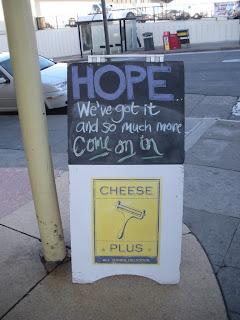 HOPE...
We've got it
and so much more
Come on in
CHEESE
PLUS
ALL THINGS DELICIOUS